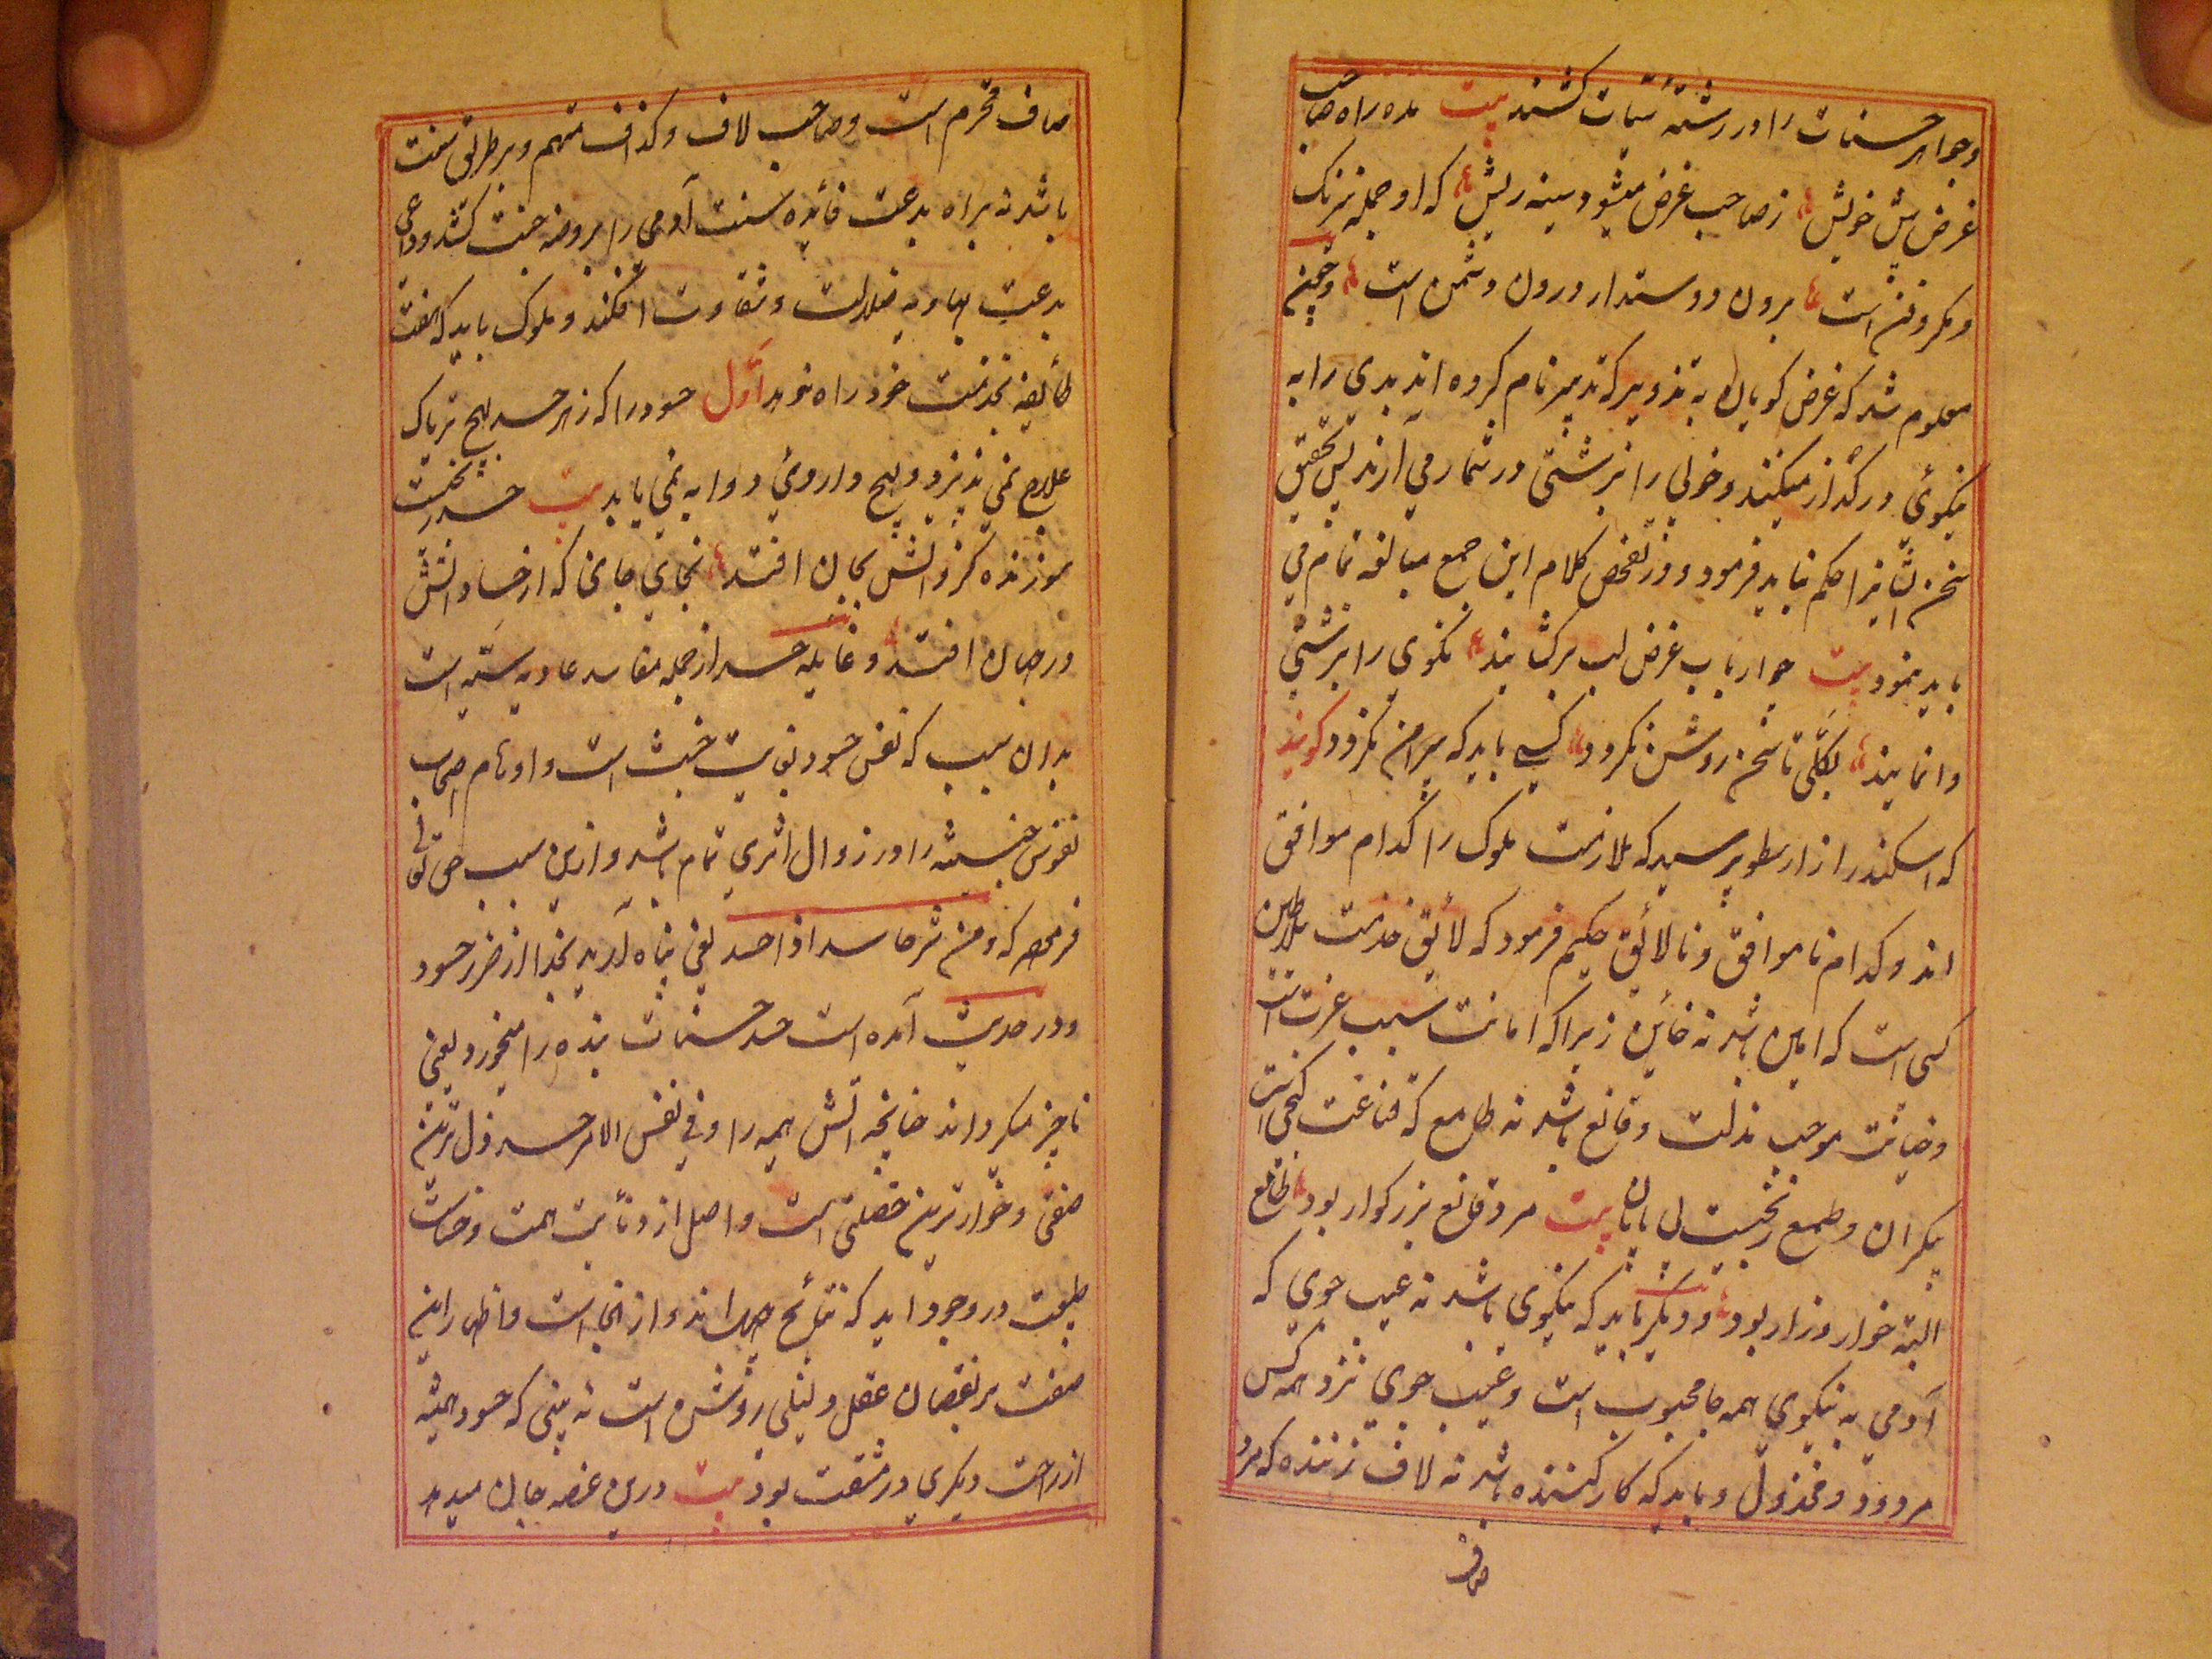 وجواهر حسنات را در رشتهٔ سیئات کشند بیت مده راه صاحب
غرض پیش خویش زصاحب غرض میشود سینه ریش که او جمله نیرنک
ومکر وفن است برون دوستدار ودرون دشمن است وچون
معلوم شد که غرض کویان به تذویر که تدبیر نام کرده اند بدی را به
نیکوئی در گذار میکنند وخوبی را بزشتی در شمار می آرند پس تحقیق
سخن ایشانرا حکم نباید فرمود ودر تفحص کلام این جمع مبالغه تمام می
باید نمود بیت چو ارباب غرض لب برکشایند نکوی را بزشتی
وانمایند بکلی تا سخن روشن نکردد کسی باید که پیرامن نکردد کویند
که اسکندر از ارسطو پرسید که ملازمت ملوک را کدام موافق
اند وکدام ناموافق ونالائق حکیم فرمود که لائق خدمت سلاطین
کسی است که امین باشد نه خائن زیرا که امانت سبب عزت است
وخیانت موجب مذلت وقانع باشد نه طامع که قناعت کنجی است
بیکران وطمع رنجیست بی پایان بیت مرد قانع بزرکوار بود طامع
البته خوار وزار بود ودیگر باید که نیکوی باشد نه عیب جوی که
آدمی به نیکوی همه جا محبوب است وعیب جوی نزد همه کس
مردود ومخذول وباید که کار کننده باشد نه لاف زننده که مرد
صاف
صاف محرم است وصاحب لاف وکذاف متهم وبر طریق سنت
باشد نه براه بدعت فائده سنت آدمی را بروضه جنت کشد وداعی
بدعت بهاویه ضلالت وشقاوت افکند وملوک باید که هفت
طائفه بخدمت خود راه ندهد اول حسود را که زهر حسد بهیچ تریاک
علاج نمی پذیرد وبهیچ داروئی دوا به نمی یابد بیت حسد رنجیست
سوزنده کزو آتش بجان افتد بجای جای که از حساد آتش
در جهان افتد وغایله حسد از جمله مفاسد عادیه سته است
بدان سبب که نفس حسود بغایت خبیث است واوهام اصحاب
نفوس خبیثه را در زوال اثری تمام باشد وازین سبب حق تعالی
فرمود که ومن شر حاسد اذا حسد یعنی پناه آرید بخدا از ضرر حسود
ودر حدیث آمده است حسد حسنات بنده را میخورد یعنی
ناچیز میکرداند چنانچه آتش هیمه را وفی نفس الامر حسد رذل ترین
صفتی وخوارترین خصلتی است واصل از دنائت همت وخساست
طبیعت در وجود آید که نتائج جهل اند واز انجاست واظهار این
صفت بر نقصان عقل دلیلی روشن است نه بینی که حسود همیشه
از راحت دیکری در مشقت بود بیت درین غصه جان میدهد